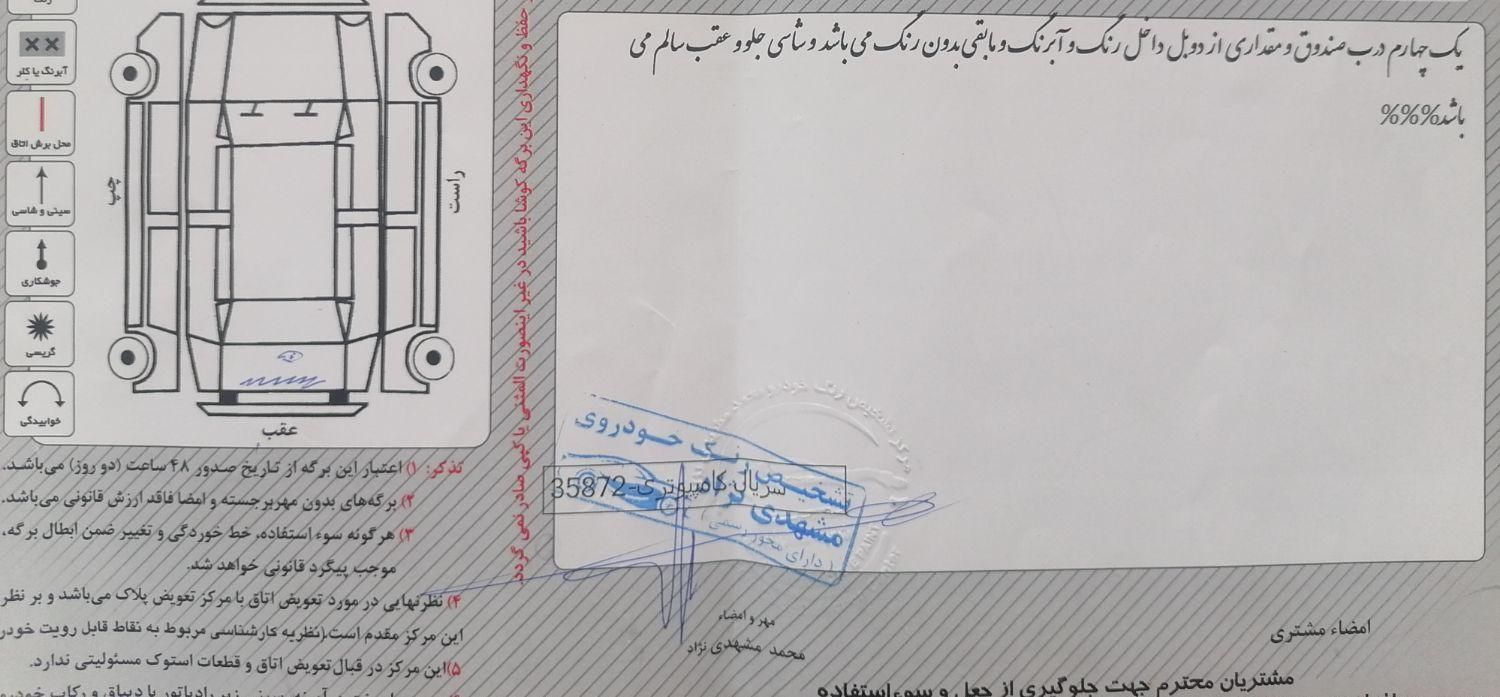 یک چهارم درب صندوق و مقداری از دوبل داخل رنگ و آبرنگ و مابقی بدون رنگ می باشد و شاسی جلو و عقب سالم می
باشد%%%
آبرنگ یا کلر
محل برش اتاق
سینی و شاسی
جوشکاری
گریسی
خوابیدگی
چپ
راست
عقب
حفظ و نگهداری این برگه کوشا باشید در غیر اینصورت المثنی یا کپی صادر نمی گردد.
تشخیص رنگ خودروی
مشهدی نژاد
( دارای مجوز رسمی )
سریال کامپیوتری-35872
مهر و امضاء
محمد مشهدی نژاد
امضاء مشتری
تذکر: ۱) اعتبار این برگه از تاریخ صدور ۴۸ ساعت (دو روز) می‌باشد.
۲) برگه‌های بدون مهربرجسته و امضا فاقد ارزش قانونی می‌باشد.
۳) هرگونه سوء استفاده، خط خوردگی و تغییر ضمن ابطال برگه،
موجب پیگرد قانونی خواهد شد.
۴) نظرنهایی در مورد تعویض اتاق با مرکز تعویض پلاک می‌باشد و بر نظر
این مرکز مقدم است.(نظریه کارشناسی مربوط به نقاط قابل رویت خودر
۵)این مرکز در قبال تعویض اتاق و قطعات استوک مسئولیتی ندارد.
مشتریان محترم جهت جلوگیری از جعل و سوءاستفاده